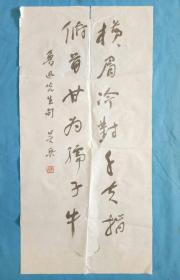 横眉冷對千夫指
俯首甘为孺子牛
魯迅先生句